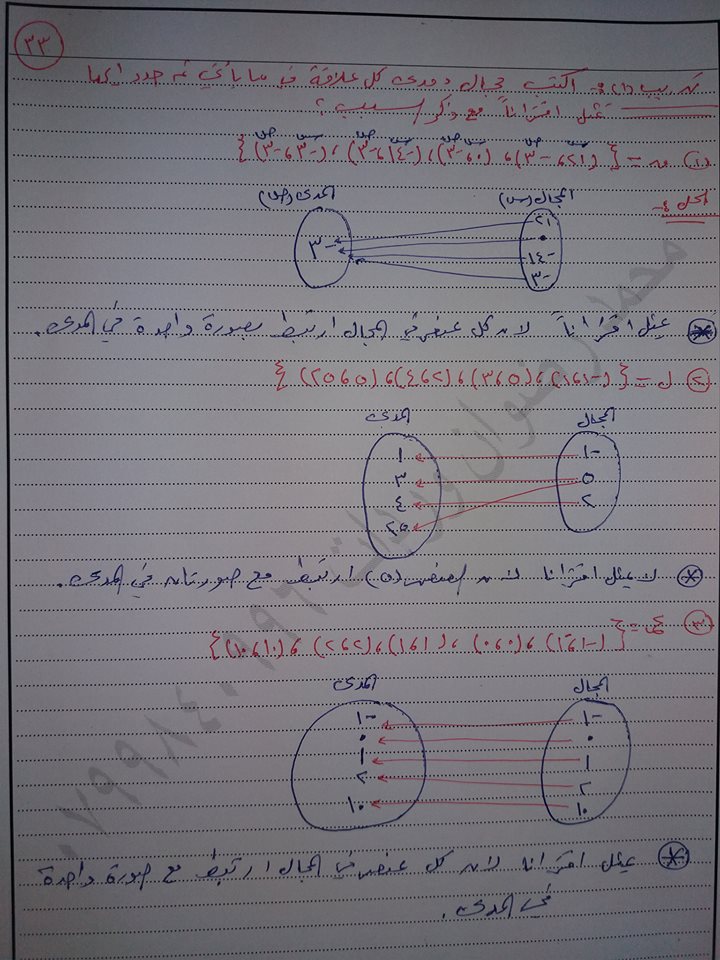 ٣٣
تدريب (١) :- اكتب مجال ومدى كل علاقة في ما يأتي ثم حدد أيها
تمثل اقتراناً مع ذكر السبب ؟
(١) = { (٢١ ، -٣) ، (٠ ، -٣) ، (-١٤ ، -٣) ، (-٣ ، -٣) }
س ص س ص س ص س ص
الحل :-
المجال (س) المدى (ص)
٢١
٠ -٣
-١٤
-٣
* يمثل اقتراناً لأن كل عنصر في المجال ارتبط بصورة واحدة في المدى .
(٢) ل = { (-١ ، ١) ، (٥ ، ٣) ، (٢ ، ٤) ، (٥ ، ٢٥) }
المجال المدى
-١ ١
٥ ٣
٢ ٤
٢٥
* لا يمثل اقترانا لأن العنصر (٥) ارتبط مع صورتان في المدى .
(٣) = { (-١ ، -١) ، (٠ ، ٠) ، (١ ، ١) ، (٢ ، ٢) ، (١٠ ، ١٠) }
المجال المدى
-١ -١
٠ ٠
١ ١
٢ ٢
١٠ ١٠
* يمثل اقترانا لأن كل عنصر في المجال ارتبط مع صورة واحدة
في المدى .
محمد رضوان وريدات